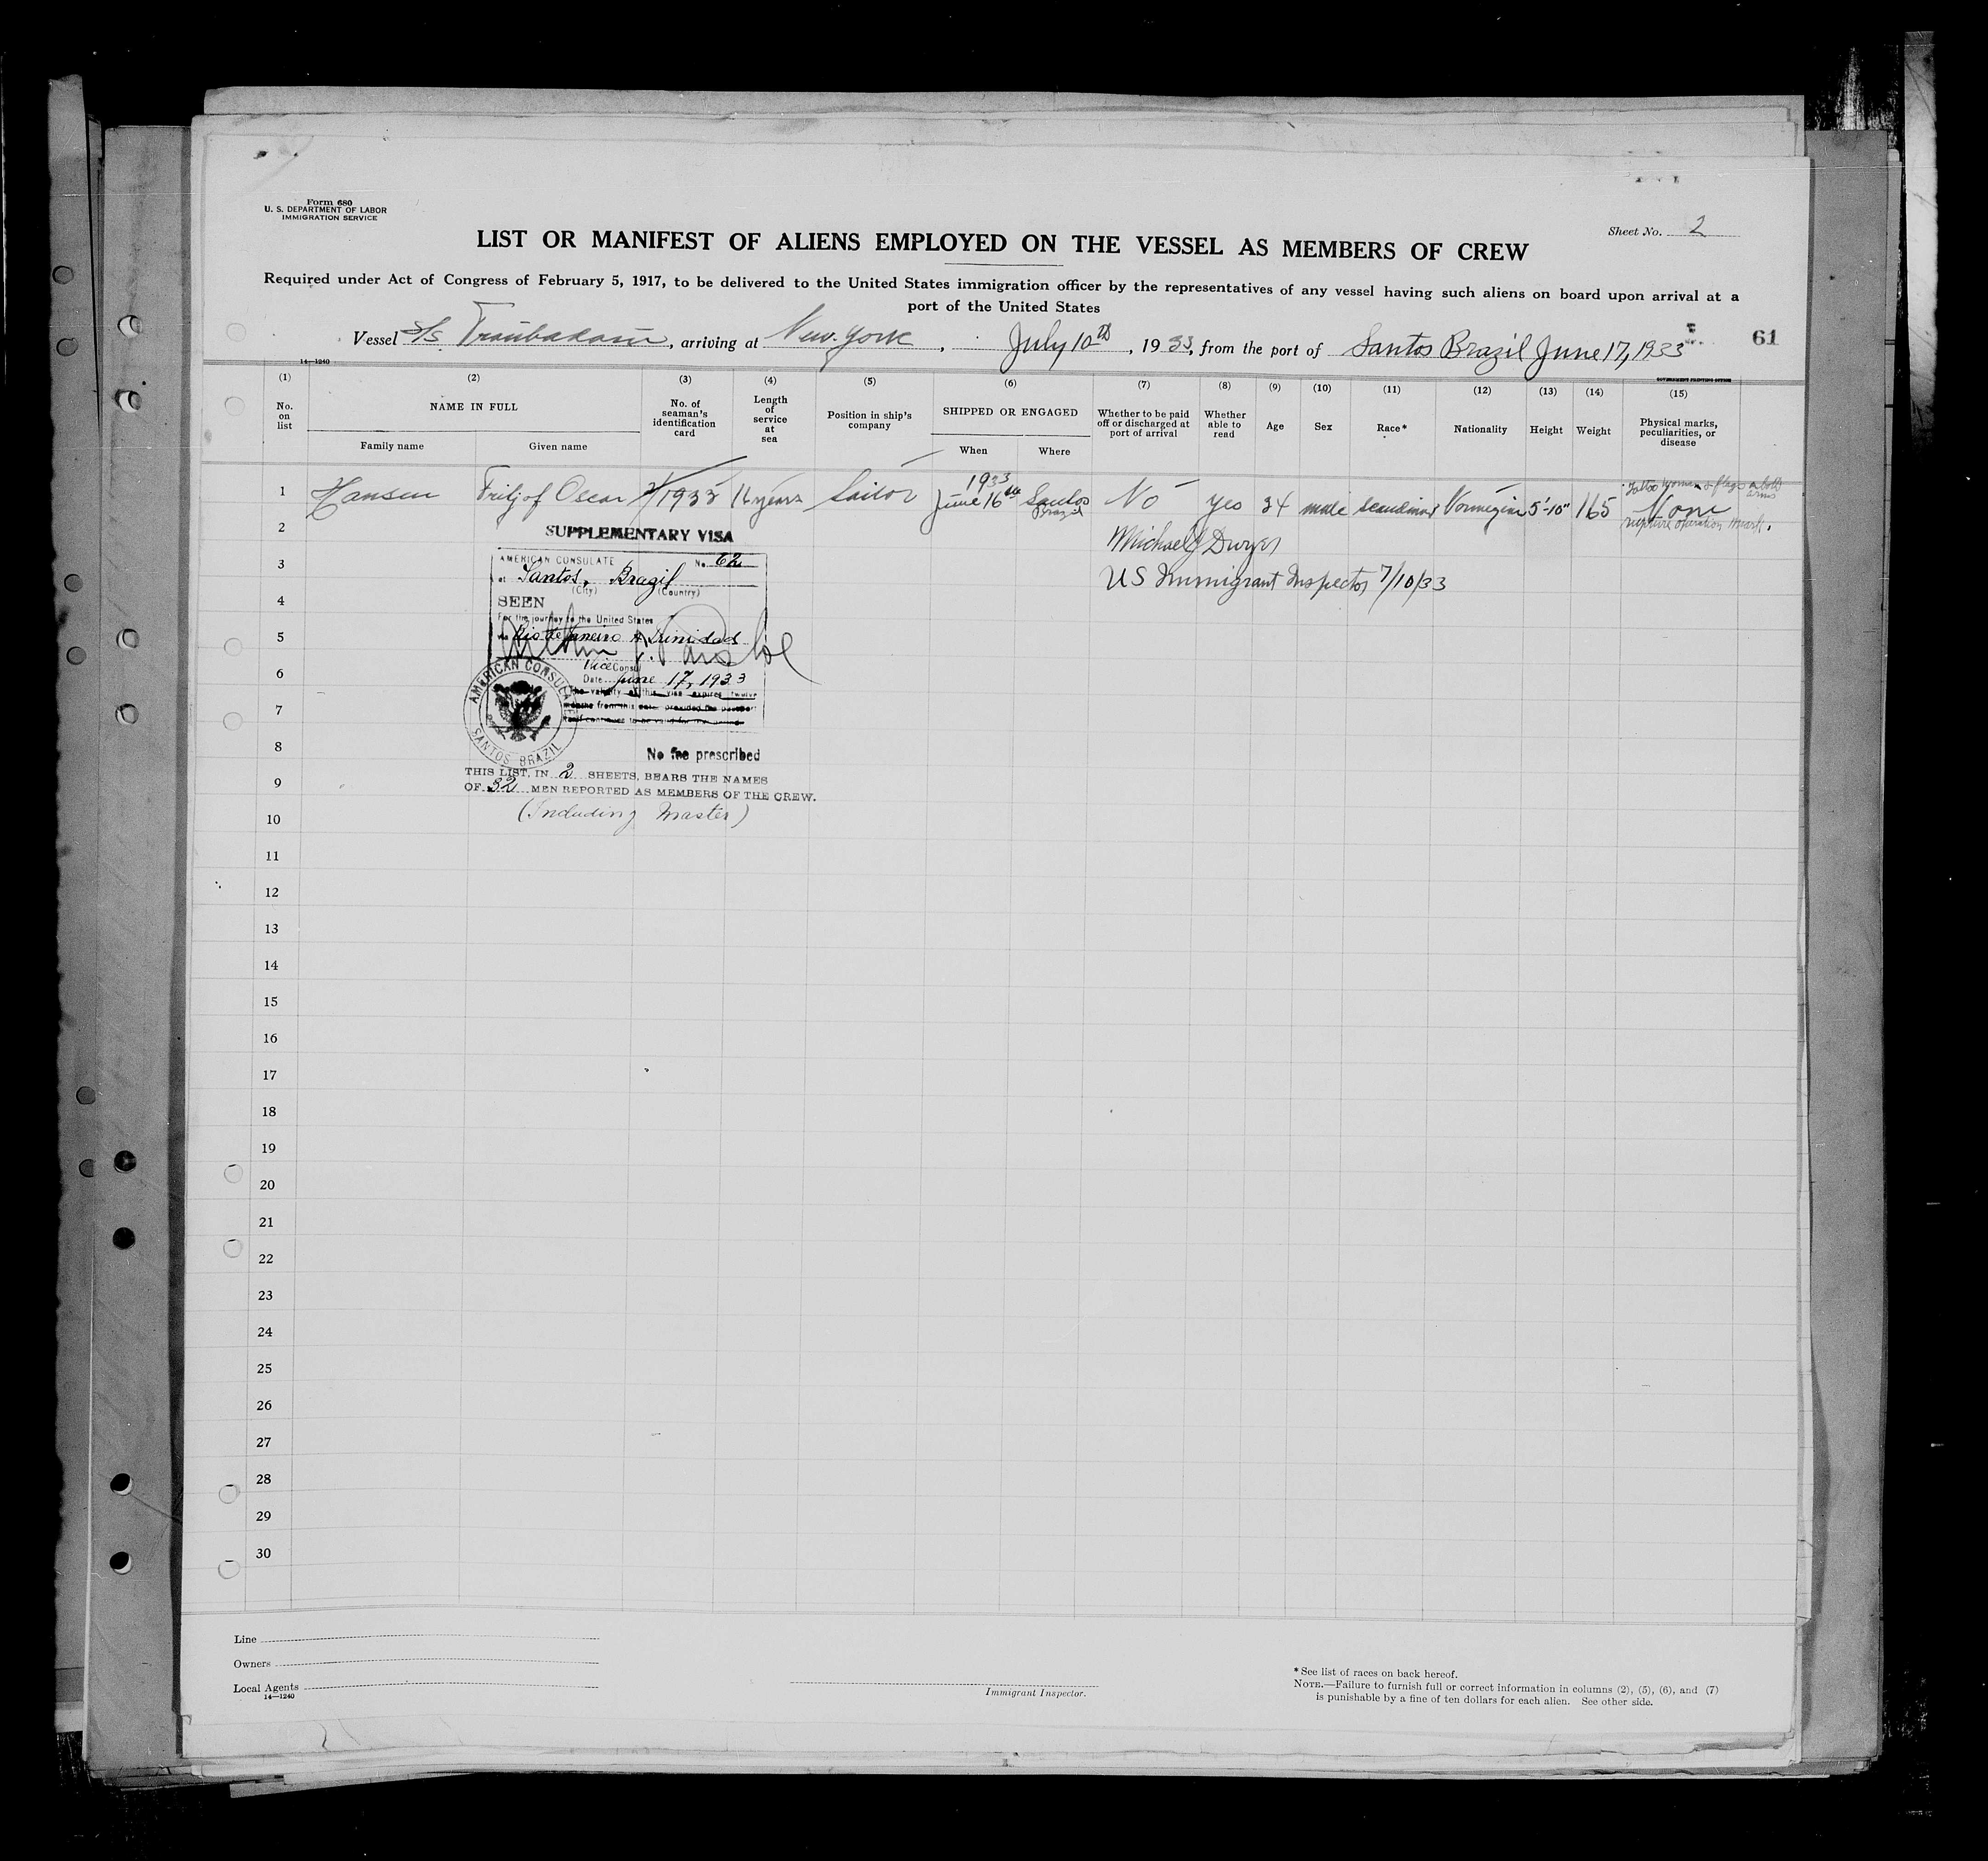 Form 680
U. S. DEPARTMENT OF LABOR
IMMIGRATION SERVICE
Sheet No. 2
LIST OR MANIFEST OF ALIENS EMPLOYED ON THE VESSEL AS MEMBERS OF CREW
Required under Act of Congress of February 5, 1917, to be delivered to the United States immigration officer by the representatives of any vessel having such aliens on board upon arrival at a
port of the United States
Vessel S/s Troubadour, arriving at New York, July 10th, 1933, from the port of Santos Brazil June 17, 1933
61
14—1240
GOVERNMENT PRINTING OFFICE
(1) (2) (3) (4) (5) (6) (7) (8) (9) (10) (11) (12) (13) (14) (15)
No. on list
NAME IN FULL
Family name
Given name
No. of seaman's identification card
Length of service at sea
Position in ship's company
SHIPPED OR ENGAGED
When
Where
Whether to be paid off or discharged at port of arrival
Whether able to read
Age
Sex
Race*
Nationality
Height
Weight
Physical marks, peculiarities, or disease
1 Hansen Oscar 1933 16 years Sailor 1933 June 16th Santos Brazil No yes 34 male Norwegian 5'-10" 165 None
Tattoo woman & flags on both arms
rupture operation mark.
2
SUPPLEMENTARY VISA
Michael J Dwyer
3
AMERICAN CONSULATE No. 62
at Santos, Brazil
(City) (Country)
US Immigrant Inspector 7/10/33
4
SEEN
For the journey to the United States
5
via Rio de Janeiro & Trinidad
6
Vice Consul
Date June 17, 1933
The validity of this visa expires twelve
months from this date provided the passport
itself continues to be valid for that period.
7
AMERICAN CONSULATE
SANTOS BRAZIL
8
No fee prescribed
THIS LIST, IN 2 SHEETS, BEARS THE NAMES
9
OF 32 MEN REPORTED AS MEMBERS OF THE CREW.
(Including Master)
10
11
12
13
14
15
16
17
18
19
20
21
22
23
24
25
26
27
28
29
30
Line
Owners
Local Agents
14—1240
Immigrant Inspector.
* See list of races on back hereof.
NOTE.—Failure to furnish full or correct information in columns (2), (5), (6), and (7)
is punishable by a fine of ten dollars for each alien. See other side.